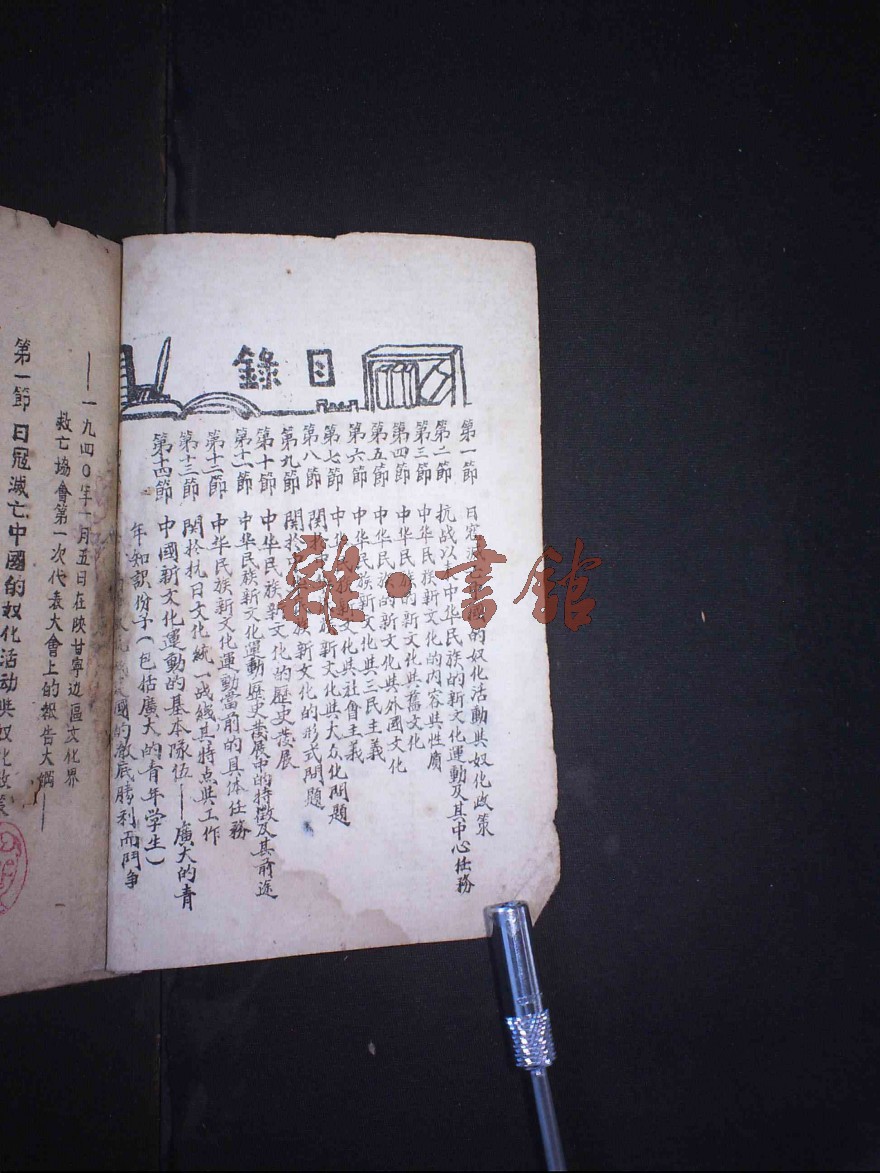 目錄
第一節 日寇滅亡中國的奴化活動與奴化政策
第二節 抗战以來中华民族的新文化運動及其中心任務
第三節 中华民族新文化的内容與性质
第四節 中华民族的新文化與舊文化
第五節 中华民族的新文化與外國文化
第六節 中华民族新文化與三民主義
第七節 中华民族新文化與社會主義
第八節 中华民族新文化與大众化問題
第九節 関於中华民族新文化的形式問題
第十節 中华民族新文化的歷史發展
第十一節 中华民族新文化運動歷史發展中的特徵及其前途
第十二節 中华民族新文化運動當前的具体任務
第十三節 関於抗日文化統一战線其特点與工作
第十四節 中國新文化運動的基本隊伍——廣大的青
年知識份子(包括廣大的青年学生)
國的澈底勝利而鬥争
——一九四〇年一月五日在陕甘宁边區文化界
救亡協會第一次代表大會上的報告大綱——
第一節 日冦滅亡中國的奴化活动與奴化政策
雜·書館